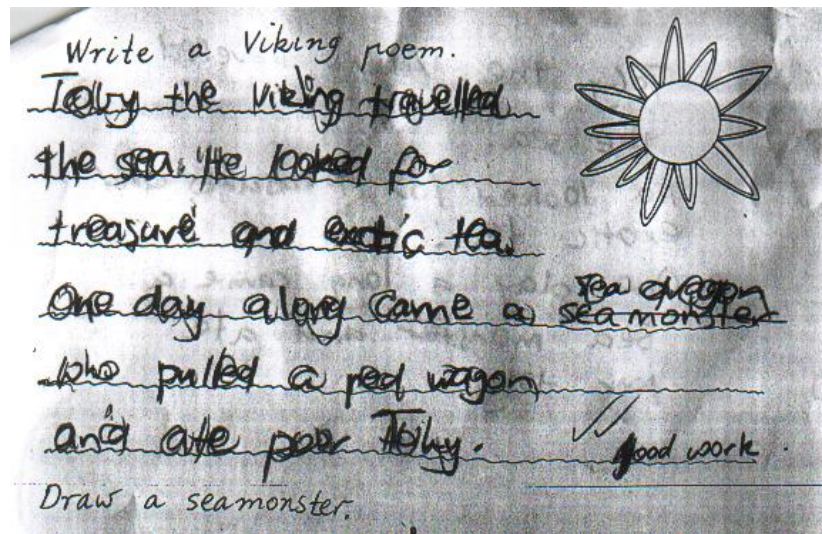 Write a Viking poem.
Toby the viking travelled
the sea. He looked for
treasure and exotic tea.
One day along came a sea dragon
sea monster
who pulled a red wagon
and ate poor Toby.
good work
Draw a seamonster.